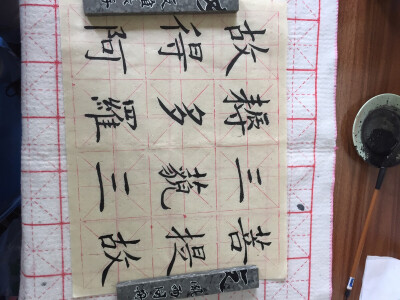 故得阿
耨多羅
三藐三
菩提故